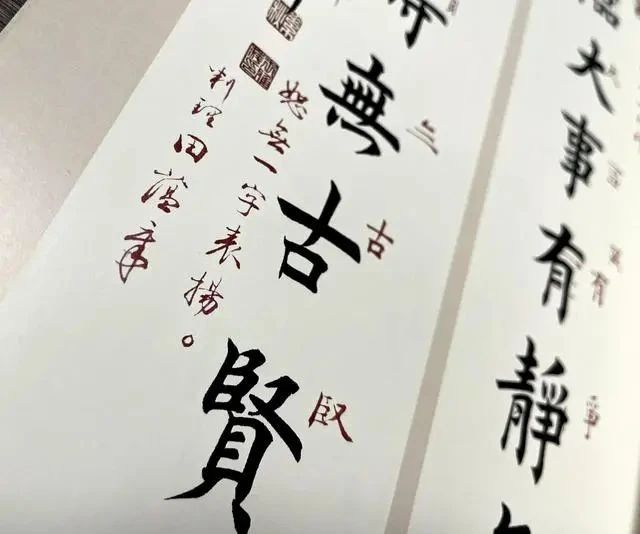 臨大事有靜
有
事
時無古賢
古
臤
恕無一字表揚。
田蘊章